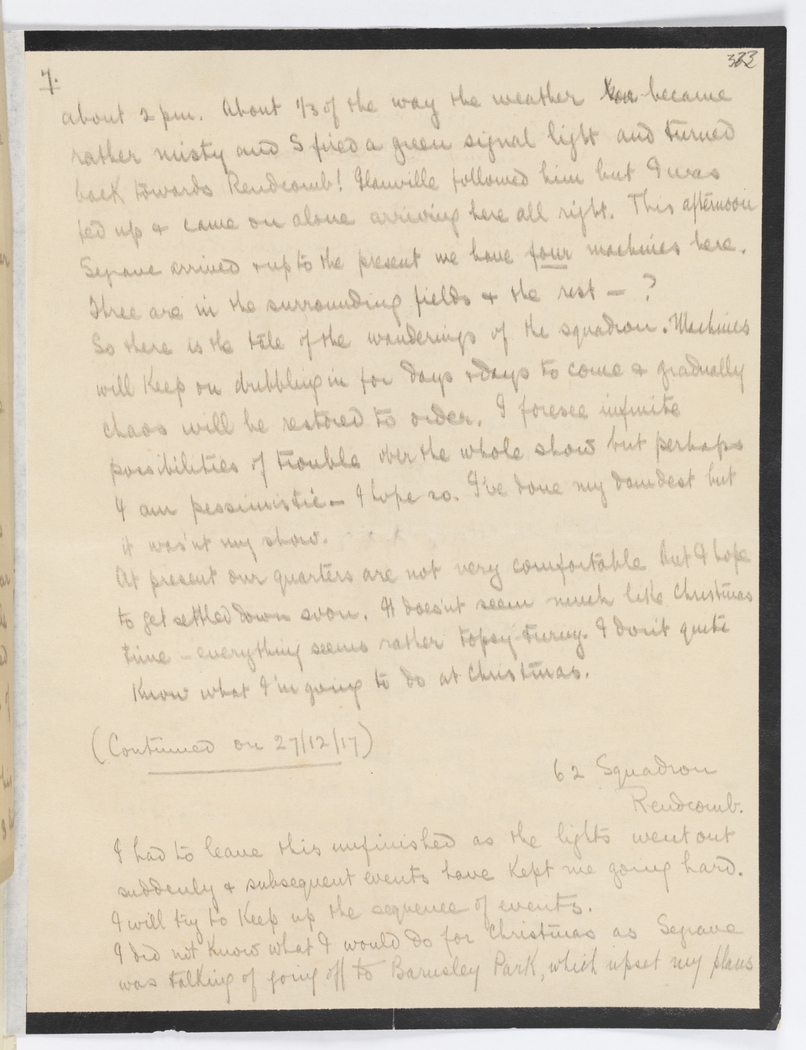 7.
323
about 2 pm. About 1/3 of the way the weather became
rather misty and S fired a green signal light and turned
back towards Rendcomb! Glanville followed him but I was
fed up & came on alone arriving here all right. This afternoon
Segrave arrived & up to the present we have four machines here.
Three are in the surrounding fields & the rest — ?
So there is the tale of the wanderings of the squadron. Machines
will keep on dribbling in for days & days to come & gradually
chaos will be restored to order. I foresee infinite
possibilities of trouble over the whole show but perhaps
I am pessimistic — I hope so. I've done my damdest but
it was'nt my show.
At present our quarters are not very comfortable but I hope
to get settled down soon. It does'nt seem much like Christmas
time — everything seems rather topsy-turvy. I don't quite
know what I'm going to do at Christmas.
(Continued on 27/12/17)
62 Squadron
Rendcomb.
I had to leave this unfinished as the lights went out
suddenly & subsequent events have kept me going hard.
I will try to keep up the sequence of events.
I did not know what I would do for Christmas as Segrave
was talking of going off to Barnsley Park, which upset my plans